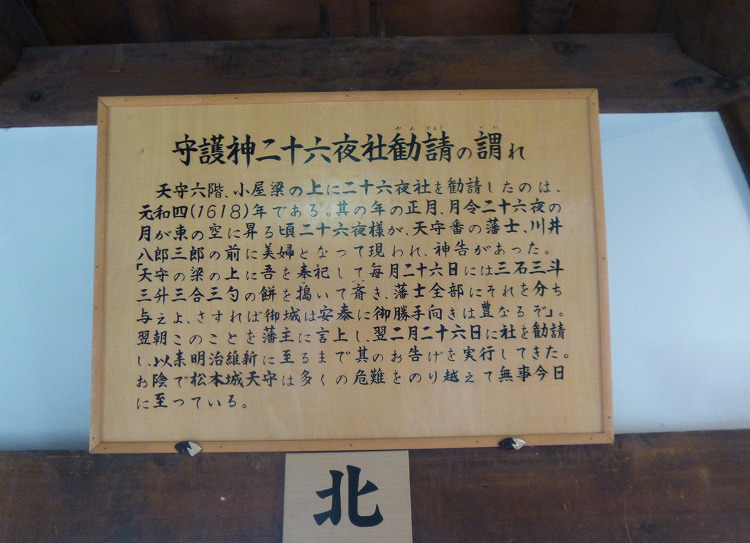 守護神二十六夜社勧請の謂れ
かんじょう いわ
天守六階、小屋梁の上に二十六夜社を勧請したのは、
元和四(1618)年である。其の年の正月、月令二十六夜の
月が東の空に昇る頃二十六夜様が、天守番の藩士、川井
八郎三郎の前に美婦となって現われ、神告があった。
「天守の梁の上に吾を奉祀して毎月二十六日には三石三斗
三升三合三勺の餅を搗いて斎き、藩士全部にそれを分ち
与えよ、さすれば御城は安泰に御勝手向きは豊なるぞ」。
翌朝このことを藩主に言上し、翌二月二十六日に社を勧請
し、以来明治維新に至るまで其のお告げを実行してきた。
お陰で松本城天守は多くの危難をのり越えて無事今日
に至っている。
北